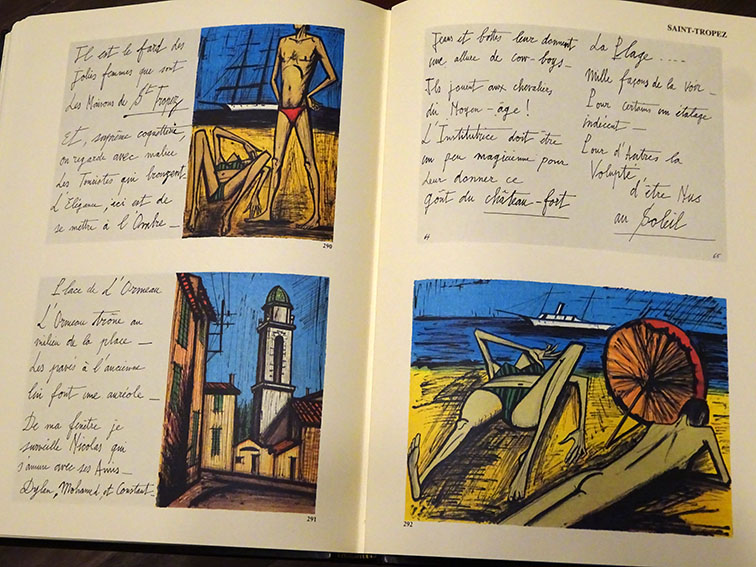 Il est le fard des
Jolies femmes que sont
Les Maisons de St Tropez
Et, suprême coquetterie
on regarde avec malice
Les Touristes qui bronzent
L'Elégance, ici est de
se mettre à l'Ombre _
290
Place de L'Ormeau
L'Ormeau trône au
milieu de la place _
Les pavés à l'ancienne
lui font une auréole _
De ma fenêtre je
surveille Nicolas qui
s'amuse avec ses Amis _
Dylan, Mohamed, et Constant _
291
SAINT-TROPEZ
Jeans et bottes leur donnent
une allure de cow-boys _
Ils jouent aux chevaliers
du Moyen-âge !
L'Institutrice doit être
un peu magicienne pour
leur donner ce
goût du château-fort
64
La Plage ....
Mille façons de la Voir _
Pour certains un étalage
indécent _
Pour d'Autres la
Volupté,
d'être Nus
au Soleil
65
292